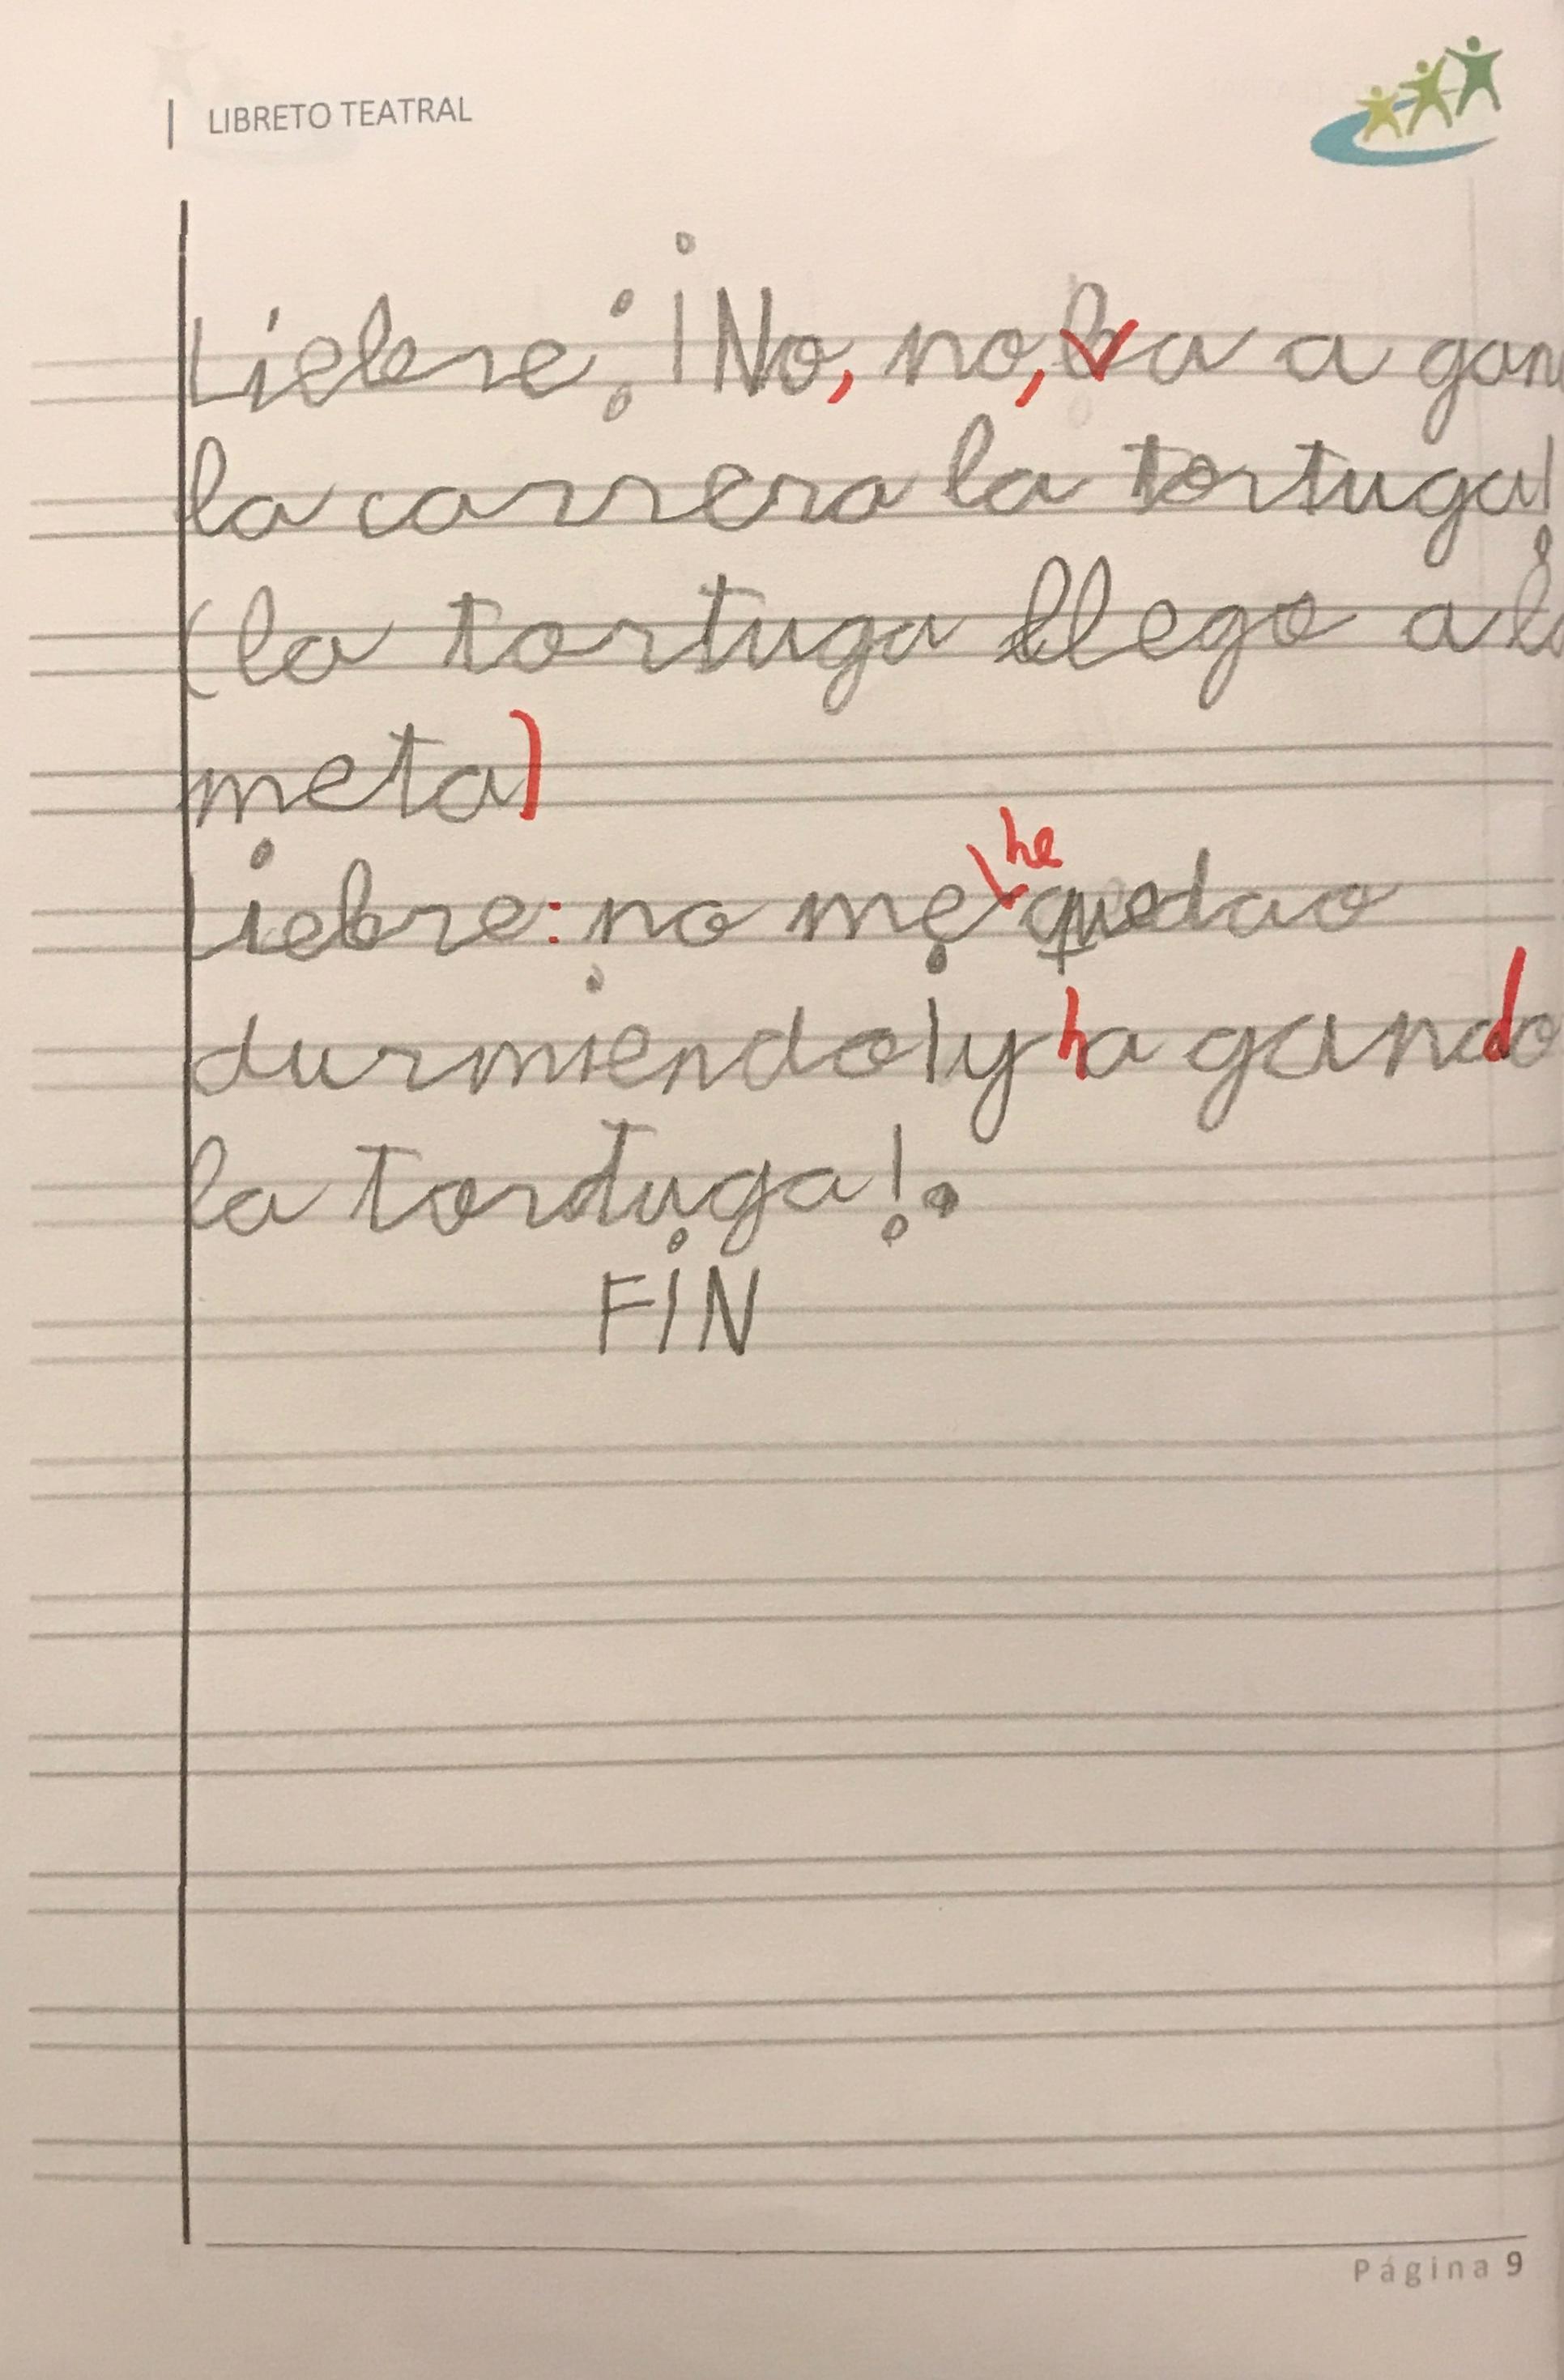 LIBRETO TEATRAL
Liebre: ¡No, no, va a gan
la carrera la tortuga!
(la tortuga llego a la
meta)
Liebre: no me he quedao
durmiendo! y ha gando
la tortuga!.
FIN
Página 9